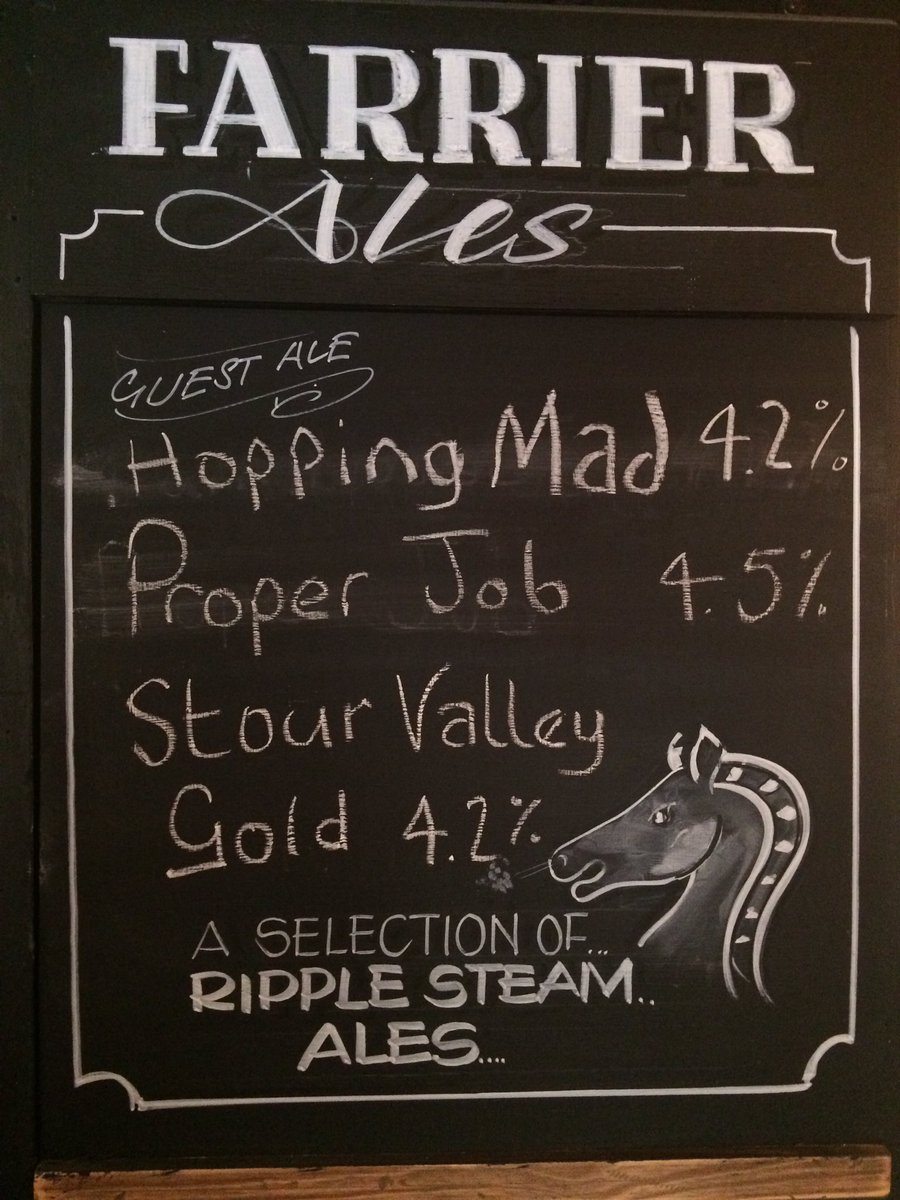 FARRIER
Ales
GUEST ALE
Hopping Mad 4.2%
Proper Job 4.5%
Stour Valley
Gold 4.2%
A SELECTION OF...
RIPPLE STEAM..
ALES....